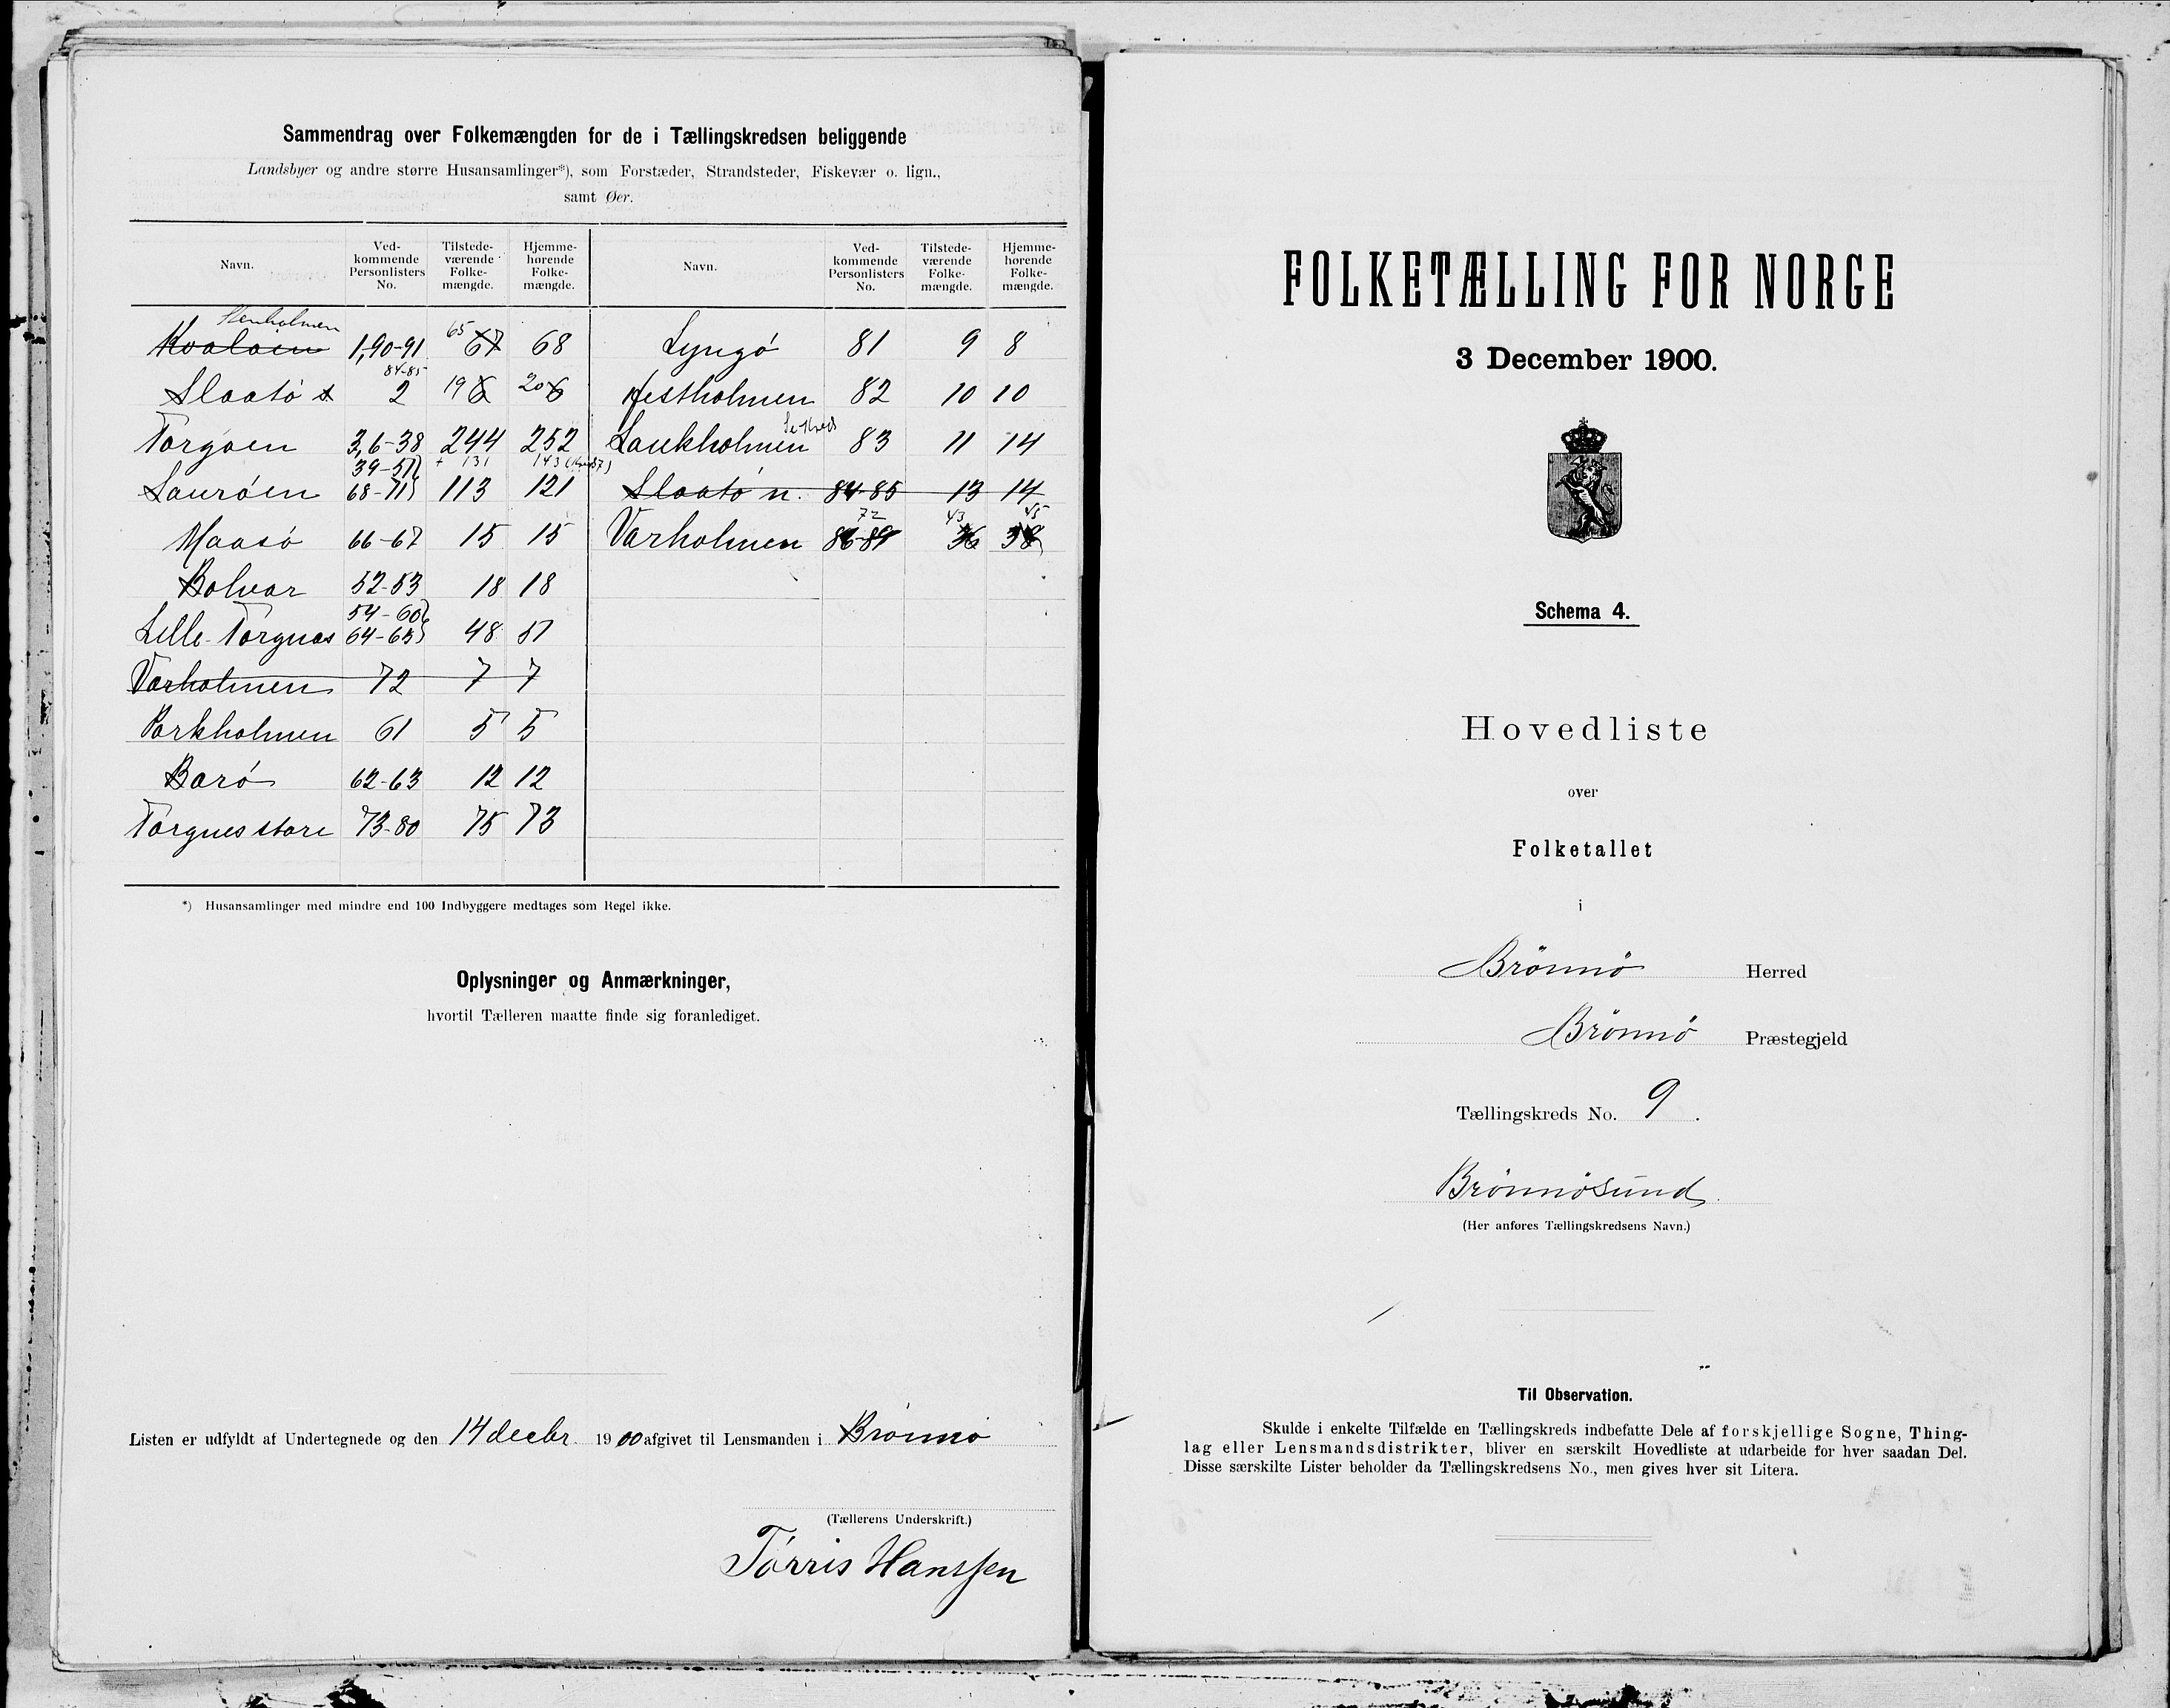 Sammendrag over Folkemængden for de i Tællingskredsen beliggende
Landsbyer og andre større Husansamlinger*), som Forstæder, Strandsteder, Fiskevær o. lign.,
samt Øer.
Navn. Ved-kommende Personlisters No. Tilstede-værende Folke-mængde. Hjemme-hørende Folke-mængde. Navn. Ved-kommende Personlisters No. Tilstede-værende Folke-mængde. Hjemme-hørende Folke-mængde.
Stenholmen
Kvaløen 1,90-91 65 67 68 Lyngö 81 9 8
84-85
Slaatö s 2 19 6 20 6 Hestholmen 82 10 10
Torgøen 3,6-38 244 252 Laukholmen 83 11 14
39-51 + 131 143
Laurøen 68-71 113 121 Slaatö n. 84-85 13 14
Maasö 66-67 15 15 Varholmen 72 86-89 43 36 45 38
Bolvær 52-53 18 18
54-60
Lille Torgnes 64-65 48 51
Varholmen 72 7 7
Parkholmen 61 5 5
Barö 62-63 12 12
Torgnes store 73-80 75 73
*) Husansamlinger med mindre end 100 Indbyggere medtages som Regel ikke.
Oplysninger og Anmærkninger,
hvortil Tælleren maatte finde sig foranlediget.
Listen er udfyldt af Undertegnede og den 14 decbr. 1900 afgivet til Lensmanden i Brönnö
(Tællerens Underskrift.)
Törris Hanssen
FOLKETÆLLING FOR NORGE
3 December 1900.
Schema 4.
Hovedliste
over
Folketallet
i
Brönnö Herred
Brönnö Præstegjeld
Tællingskreds No. 9.
Brönnösund
(Her anføres Tællingskredsens Navn.)
Til Observation.
Skulde i enkelte Tilfælde en Tællingskreds indbefatte Dele af forskjellige Sogne, Thing-
lag eller Lensmandsdistrikter, bliver en særskilt Hovedliste at udarbeide for hver saadan Del.
Disse særskilte Lister beholder da Tællingskredsens No., men gives hver sit Litera.